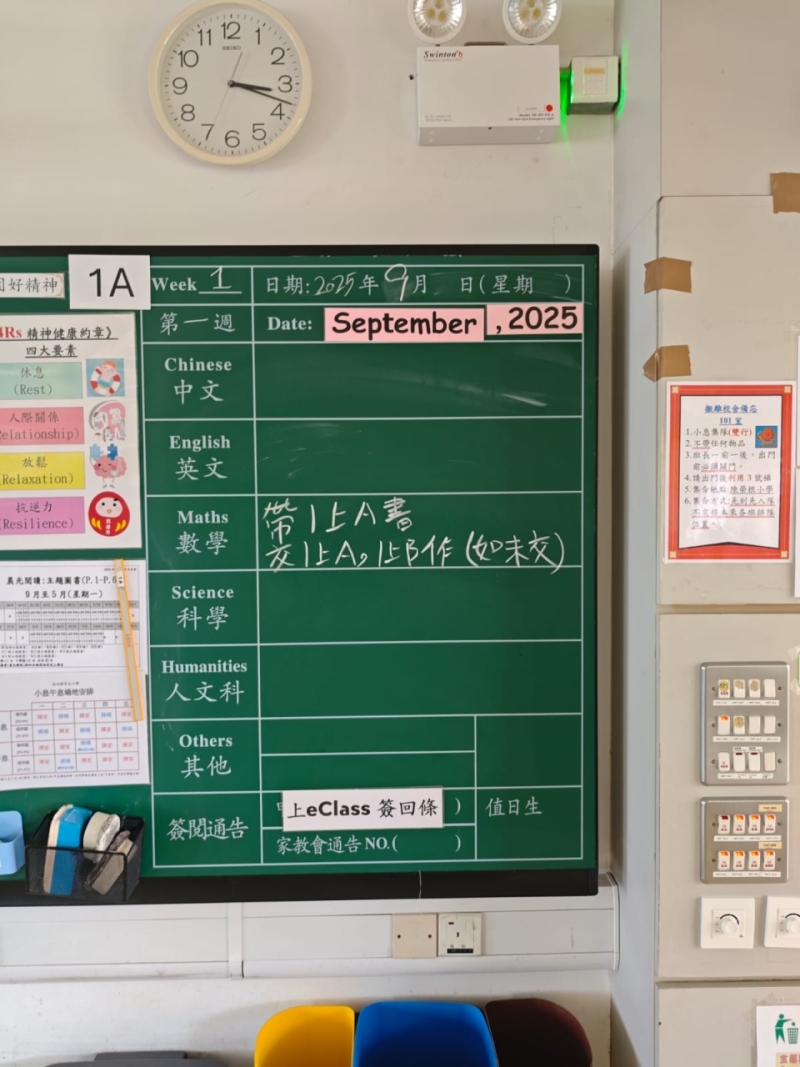 12
1
2
3
4
5
6
7
8
9
10
11
SEIKO
Swinton
1A
Week 1
日期:2025年9月 日(星期 )
第一週
Date: September , 2025
好精神
4Rs 精神健康約章》
四大要素
休息
(Rest)
人際關係
Relationship)
放鬆
(Relaxation)
抗逆力
(Resilience)
Chinese
中文
English
英文
Maths
數學
帶1上A書
交1上A,1上B作(如未交)
Science
科學
Humanities
人文科
Others
其他
簽閱通告
上eClass 簽回條
)
家教會通告NO.( )
值日生
晨光閱讀:主題圖書(P.1-P.6
9月至5月(星期一)
小息午息編地安排
撤離校舍備忘
101室
1.小息集隊(雙行)
2.不帶任何物品
3.班長一前一後,出門
前必須關門。
4.請出門後利用3號梯
5.集合地點:陳榮根小學
6.集合方式:先到先入隊